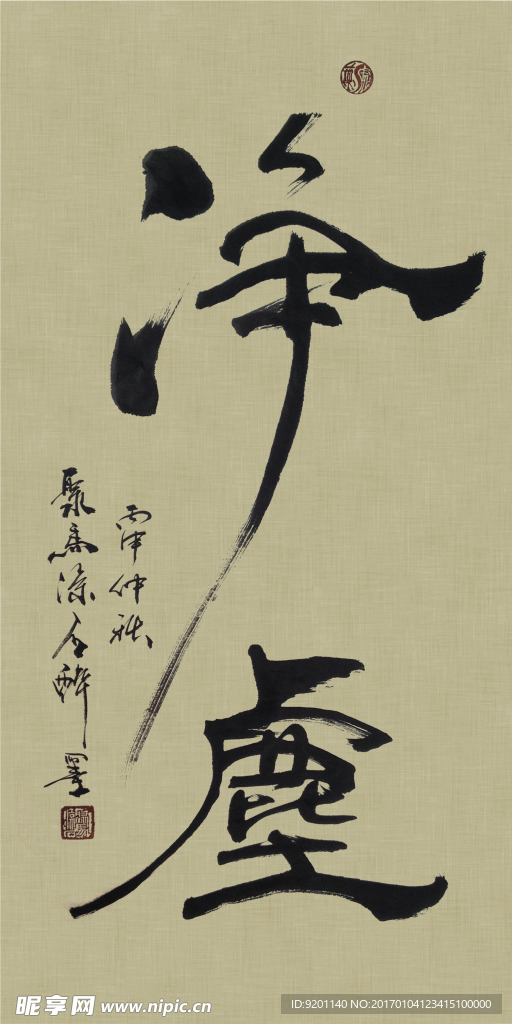 净塵
丙申仲秋
醉墨
昵享网 www.nipic.cn
ID:9201140 NO:20170104123415100000